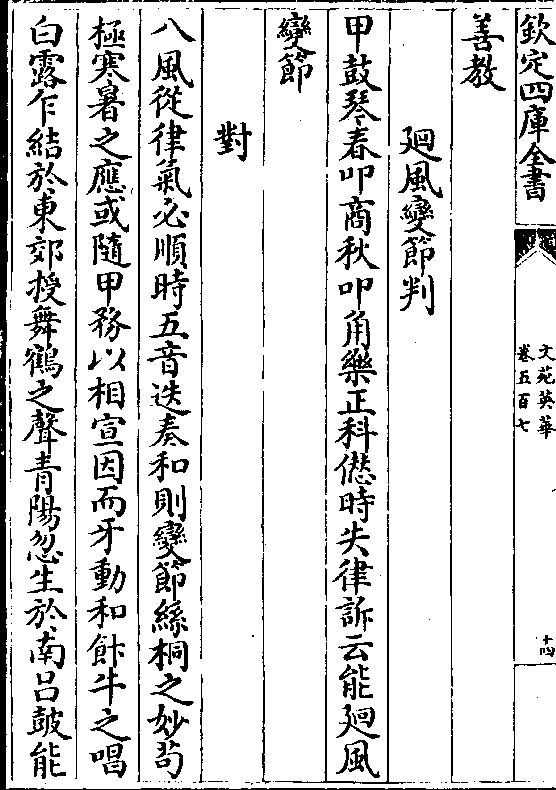 欽定四庫全書
文苑英華
卷五百七
十四
善教
廻風變節判
甲鼓琴春叩商秋叩角樂正科愆時失律訴云能廻風
變節
對
八風從律氣必順時五音迭奏和則變節絲桐之妙茍
極寒暑之應或隨甲務以相宣因而牙動和飰牛之唱
白露乍結於東郊授舞鶴之聲青陽忽生於南吕皷能